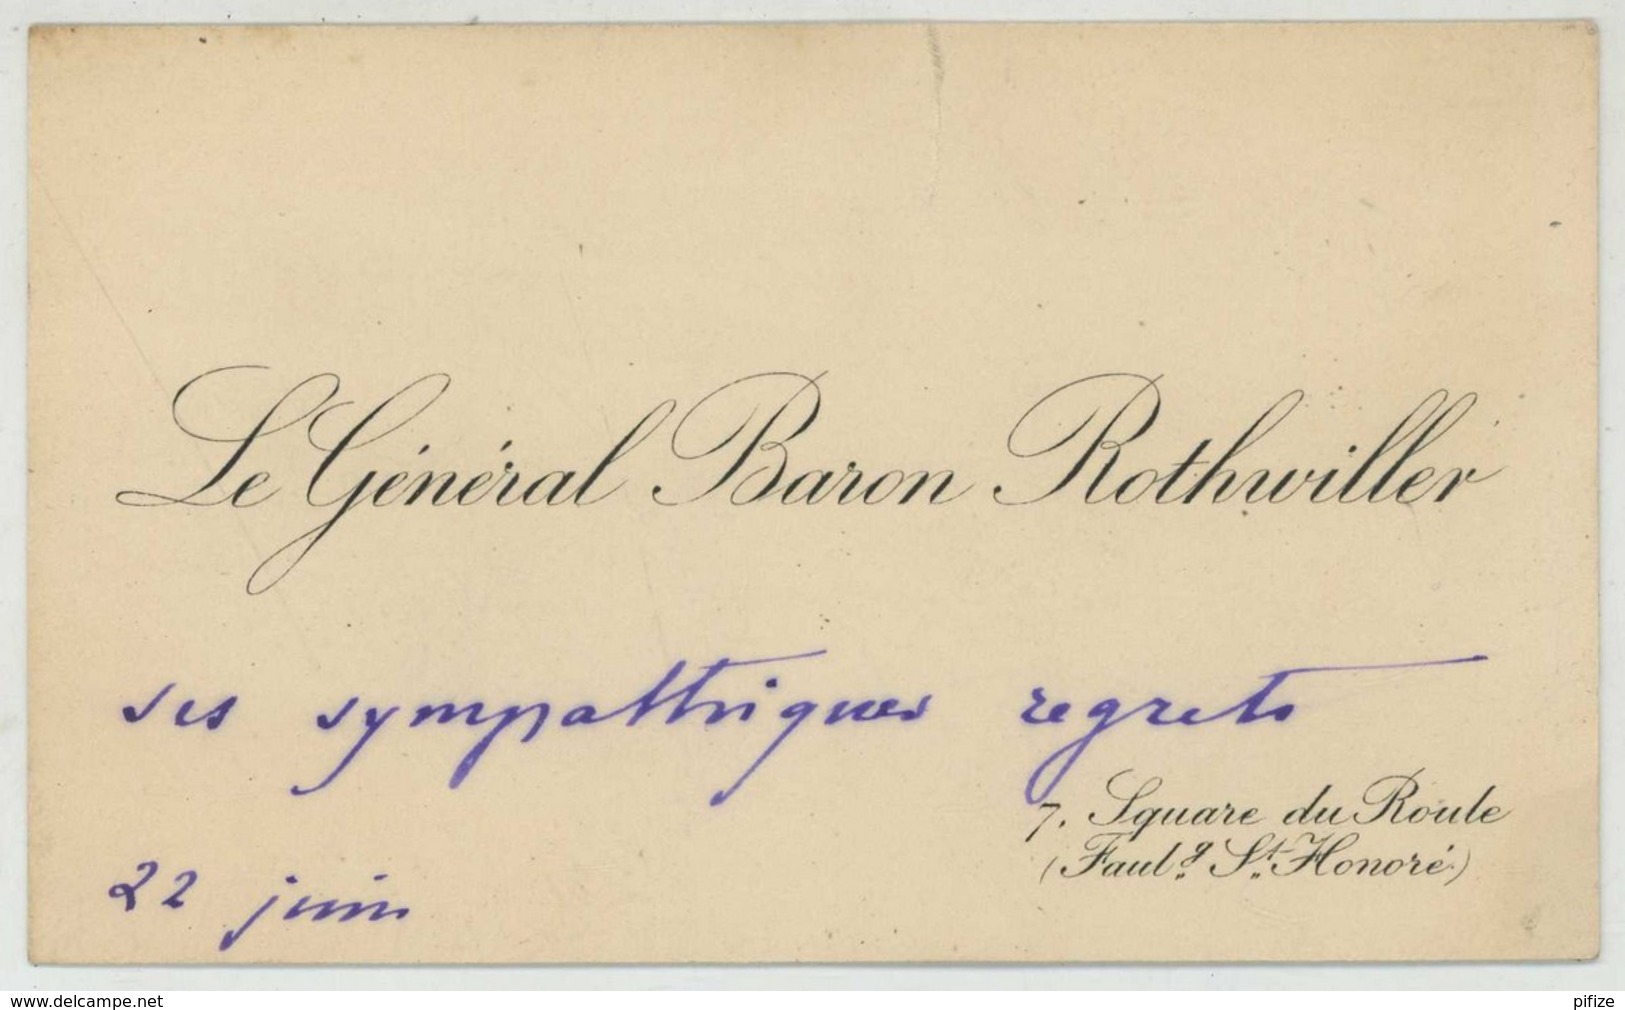 Le Général Baron Rothwiller
ses sympathiques regrets
7, Square du Roule
(Faubg. St. Honoré.)
22 juin
www.delcampe.net
pifize